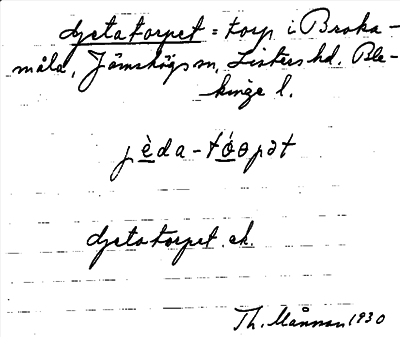 djetatorpet = torp i Broka-
måla, Jämshögs sn, Listers hd. Ble-
kinge l.
jèda-tóopət
djetatorpet. ek.
Th. Månsson 1930